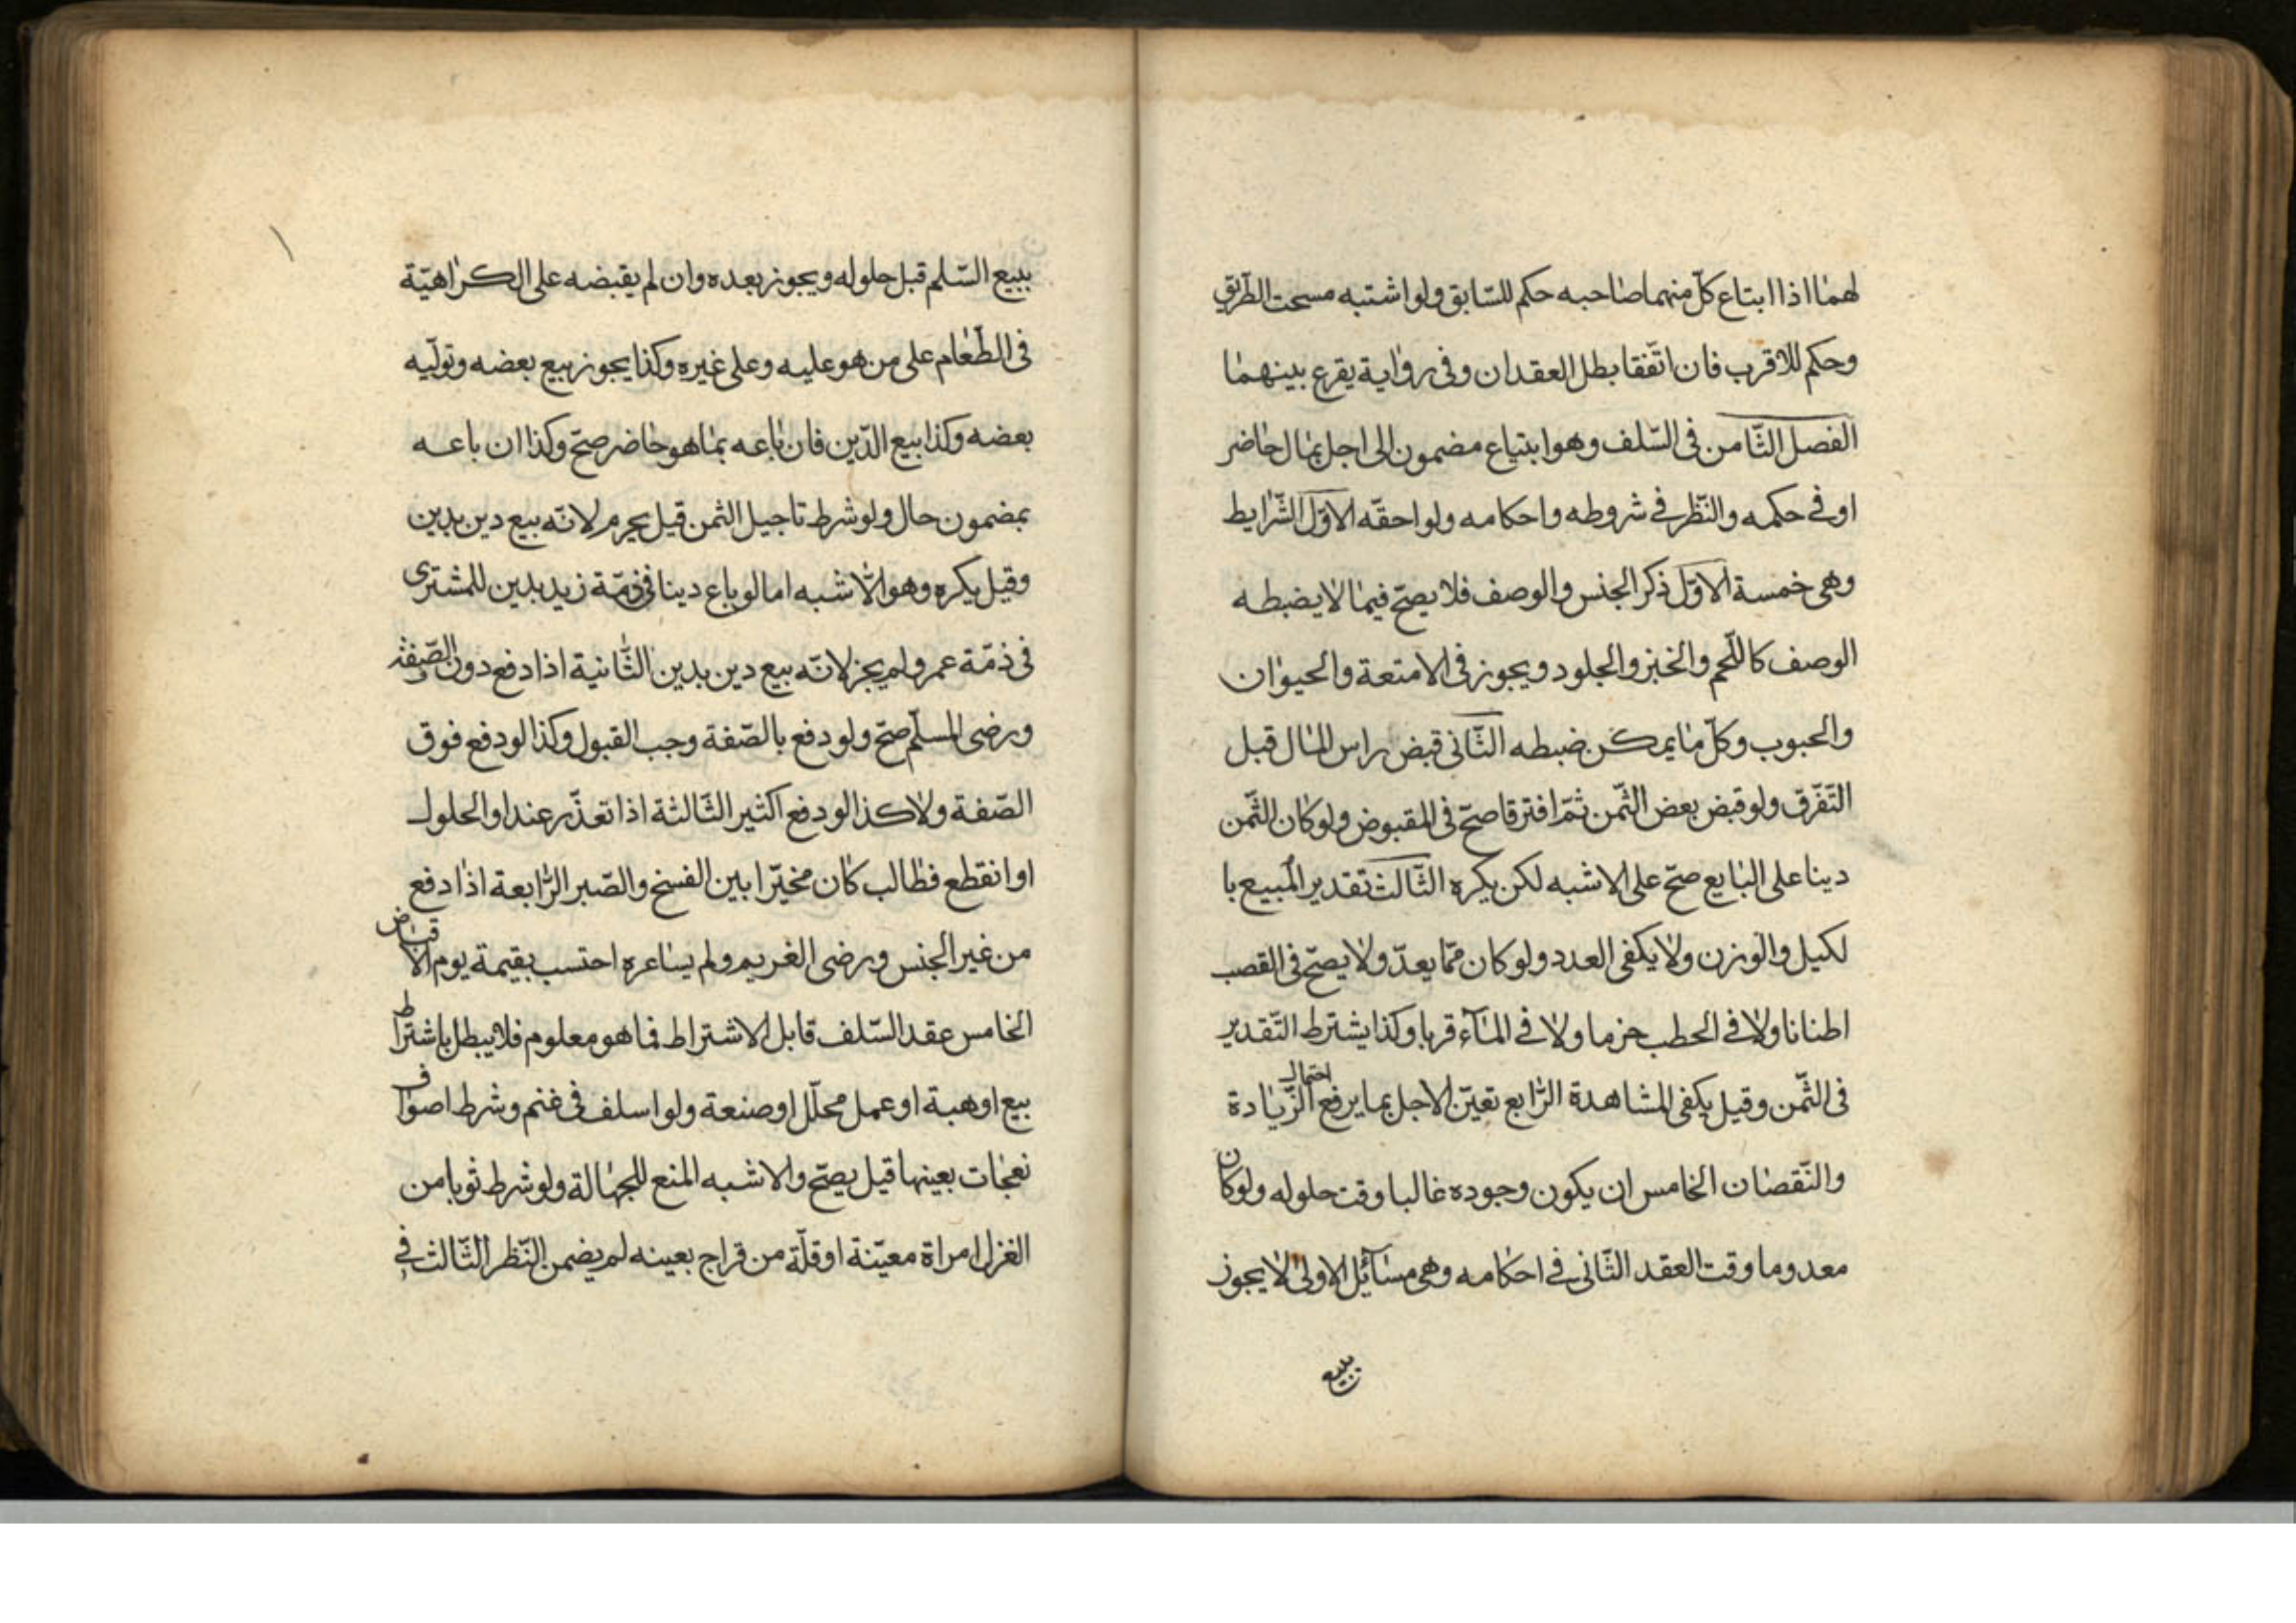 لهما اذا ابتاع كلّ منهما صاحبه حكم للسّابق ولو اشتبه مسحت الطّريق
وحكم للاقرب فان اتّفقا بطل العقدان وفى رواية يقرع بينهما
الفصل الثّامن فى السّلف وهو ابتياع مضمون الى اجل بمال حاضر
او فى حكمه والنّظر فى شروطه واحكامه ولواحقه الاوّل الشّرايط
وهى خمسة الاوّل ذكر الجنس والوصف فلا يصحّ فيما لا يضبطه
الوصف كاللّحم والخبز والجلود ويجوز فى الامتعة والحيوان
والحبوب وكلّ ما يمكن ضبطه الثّانى قبض راس المال قبل
التّفرّق ولو قبض بعض الثّمن ثمّ افترقا صحّ فى المقبوض ولو كان الثّمن
دينا على البايع صحّ على الاشبه لكن يكره الثّالث تقدير المبيع با
لكيل والوزن ولا يكفى العدد ولو كان ممّا يعدّ ولا يصحّ فى القصب
اطنانا ولا فى الحطب حزما ولا فى المآء قربا وكذا يشترط التّقدير
فى الثّمن وقيل يكفى المشاهدة الرّابع تعيّن الاجل بما يرفع احتمال الزّيادة
والنّقصان الخامس ان يكون وجوده غالبا وقت حلوله ولو كان
معدوما وقت العقد الثّانى فى احكامه وهى مسآئل الاولى لا يجوز
بيع
ببيع السّلم قبل حلوله ويجوز بعده وان لم يقبضه على الكراهيّة
فى الطّعام على من هو عليه وعلى غيره وكذا يجوز بيع بعضه وتولّيه
بعضه وكذا بيع الدّين فان باعه بما هو حاضر صحّ وكذا ان باعه
بمضمون حال ولو شرط تاجيل الثمن قيل يحرم لانّه بيع دين بدين
وقيل يكره وهو الاشبه اما لو باع دينا فى ذمّة زيد بدين للمشترى
فى ذمّة عمرو لم يجز لانّه بيع دين بدين الثّانية اذا دفع دون الصّفة
ورضى المسلّم صحّ ولو دفع بالصّفة وجب القبول وكذا لو دفع فوق
الصّفة ولا كذا لو دفع اكثير الثّالثة اذا تعذّر عند او الحلول
او انقطع فطالب كان مخيّرا بين الفسخ والصّبر الرّابعة اذا دفع
من غير الجنس ورضى الغريم ولم يساعره احتسب بقيمة يوم الاقباض
الخامس عقد السّلف قابل الاشتراط فما هو معلوم فلا يبطل باشتراط
بيع او هبة او عمل محلّل او صنعة ولو اسلف فى غنم وشرط اصواف
نعجات بعينها قيل يصحّ والاشبه المنع للجهالة ولو شرط ثوبا من
الغزل امراة معيّنة او قلّة من قراج بعينه لم يضمن النّظر الثّالث فى